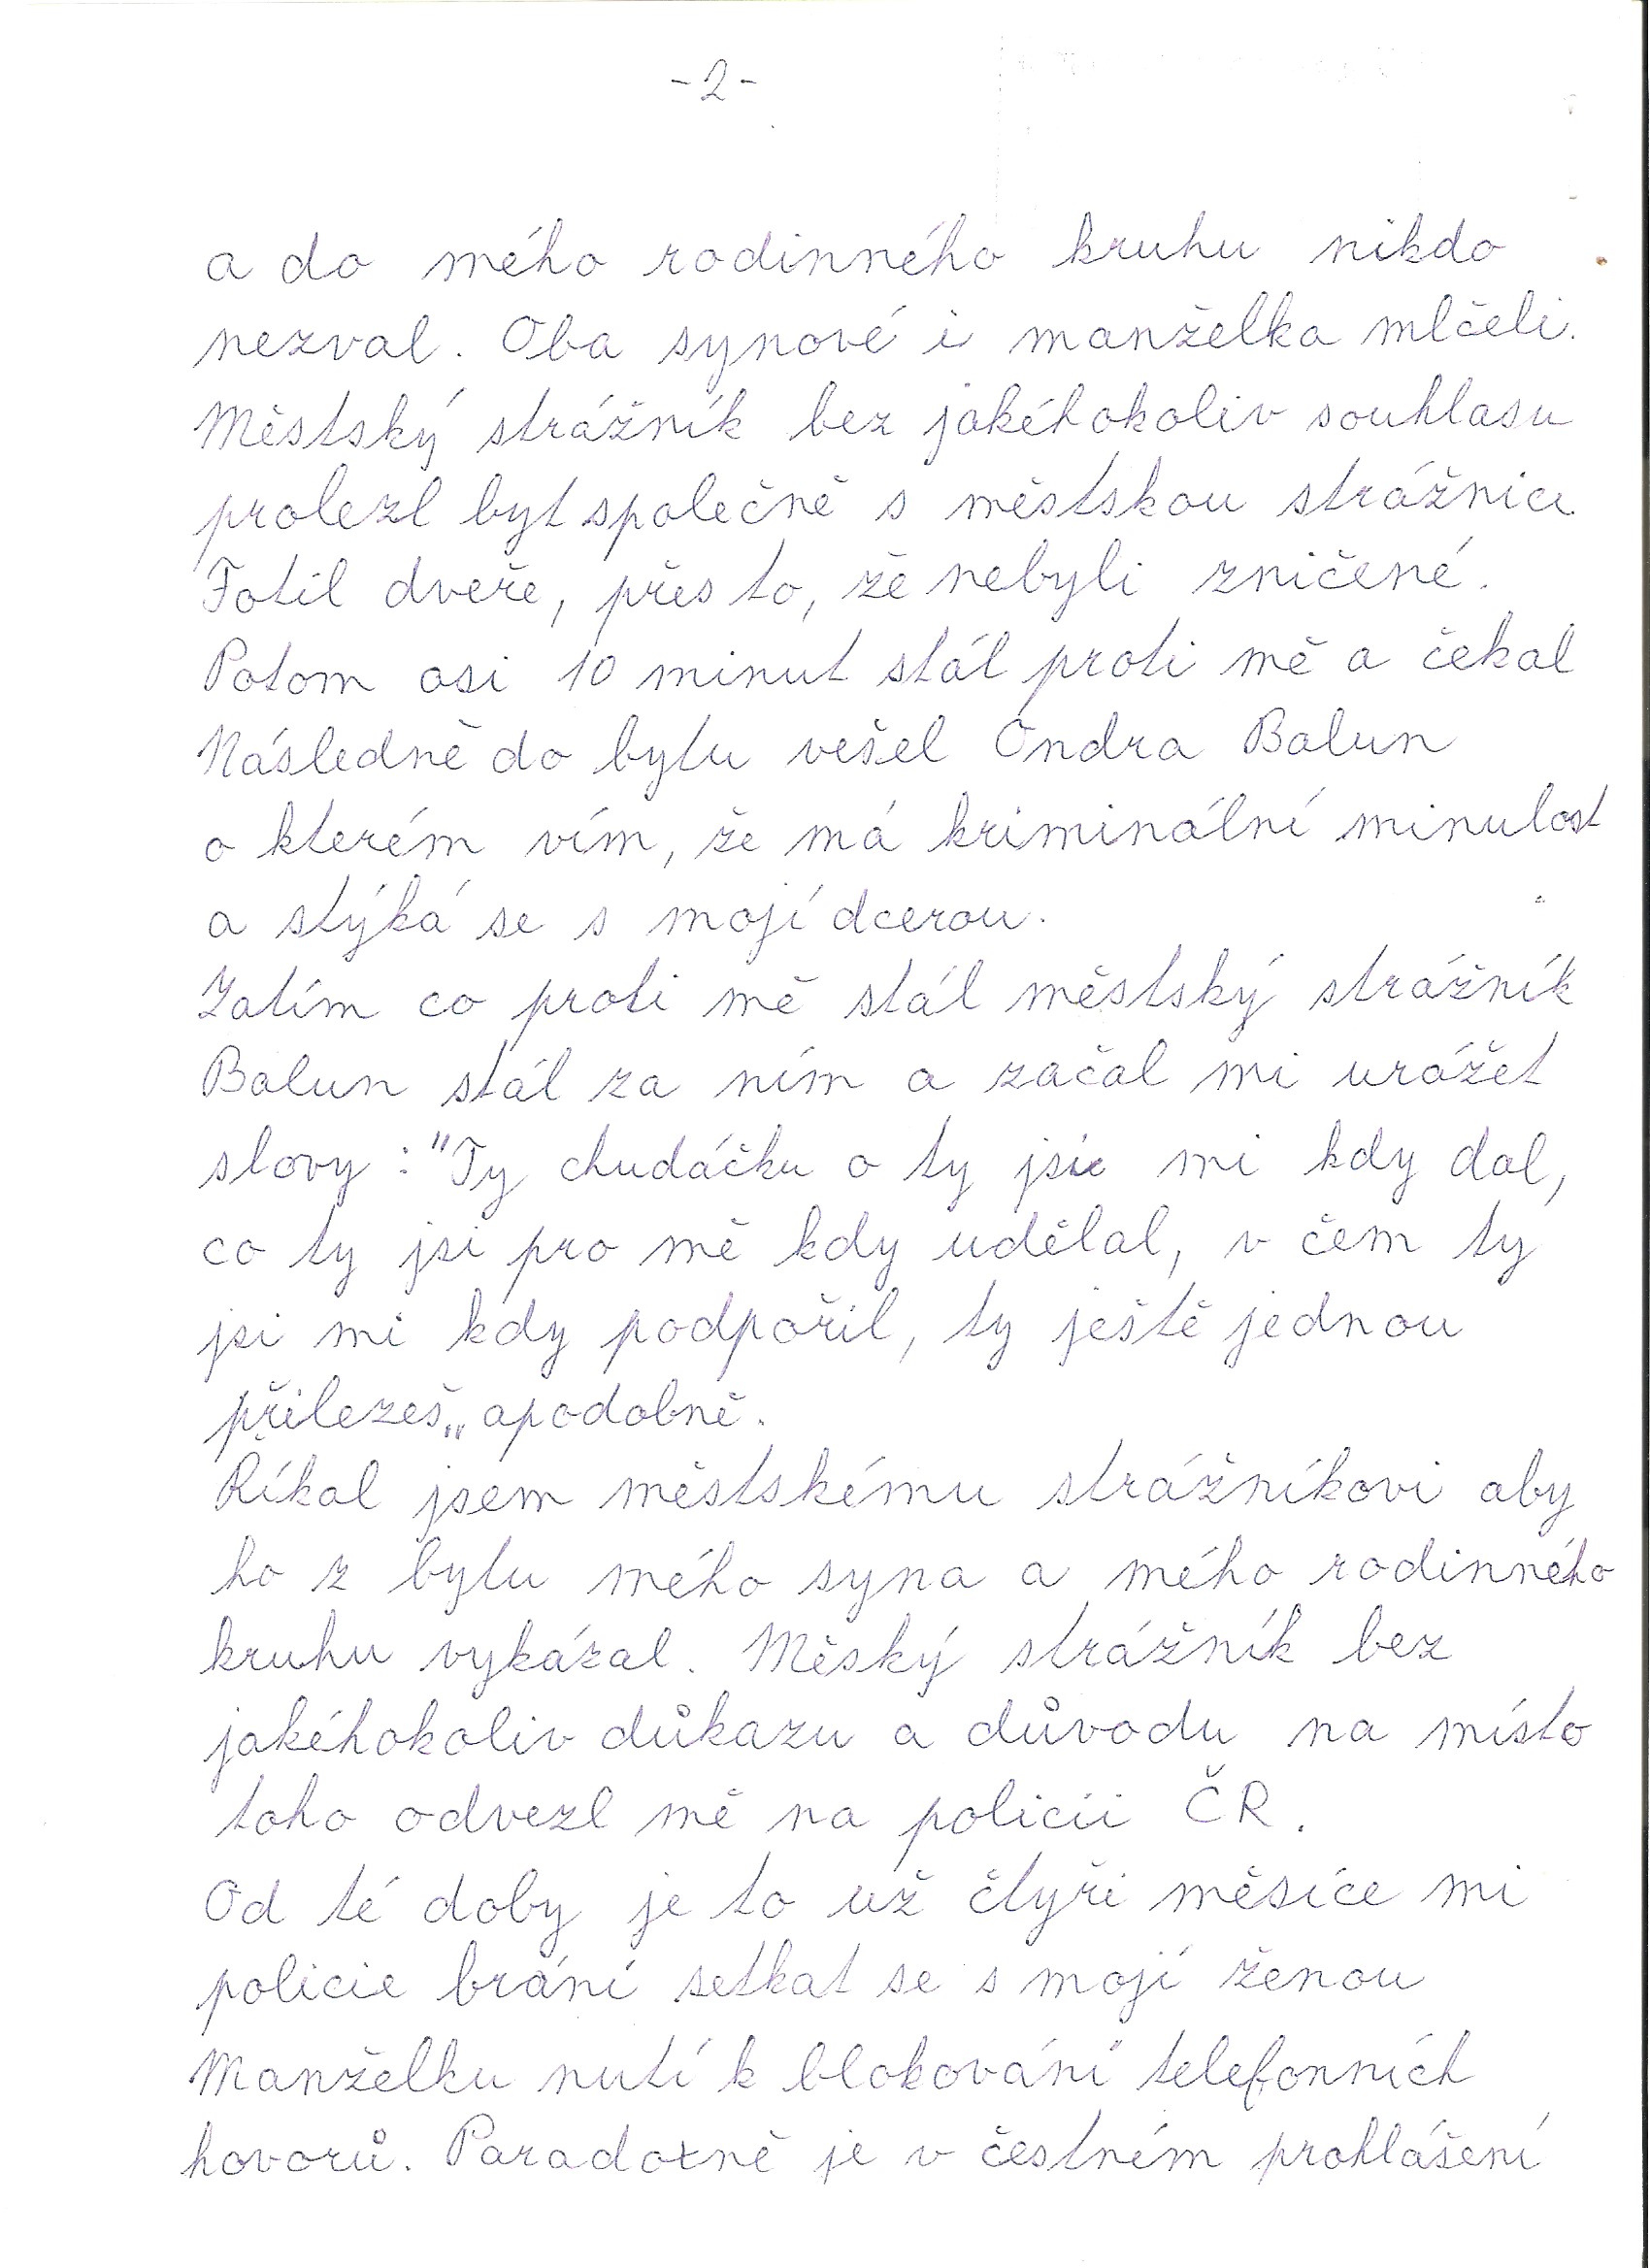 -2-
a do mého rodinného kruhu nikdo
nezval. Oba synové i manželka mlčeli.
Městský strážník bez jakéhokoliv souhlasu
prolezl byt společně s městskou strážnicí.
Fotil dveře, přes to, že nebyli zničené.
Potom asi 10 minut stál proti mě a čekal
Následně do bytu vešel Ondra Balun
o kterém vím, že má kriminální minulost
a stýká se s mojí dcerou.
Zatím co proti mě stál městský strážník
Balun stál za ním a začal mi urážet
slovy : "Ty chudáčku a ty jsi mi kdy dal,
co ty jsi pro mě kdy udělal, v čem ty
jsi mi kdy podpořil, ty ještě jednou
přilezeš„ apodobně.
Říkal jsem městskému strážníkovi aby
ho z bytu mého syna a mého rodinného
kruhu vykázal. Měský strážník bez
jakéhokoliv důkazu a důvodu na místo
toho odvezl mě na policii ČR.
Od té doby je to už čtyři měsíce mi
policie brání setkat se s mojí ženou
Manželku nutí k blokování telefonních
hovorů. Paradoxně je v čestném prohlášení